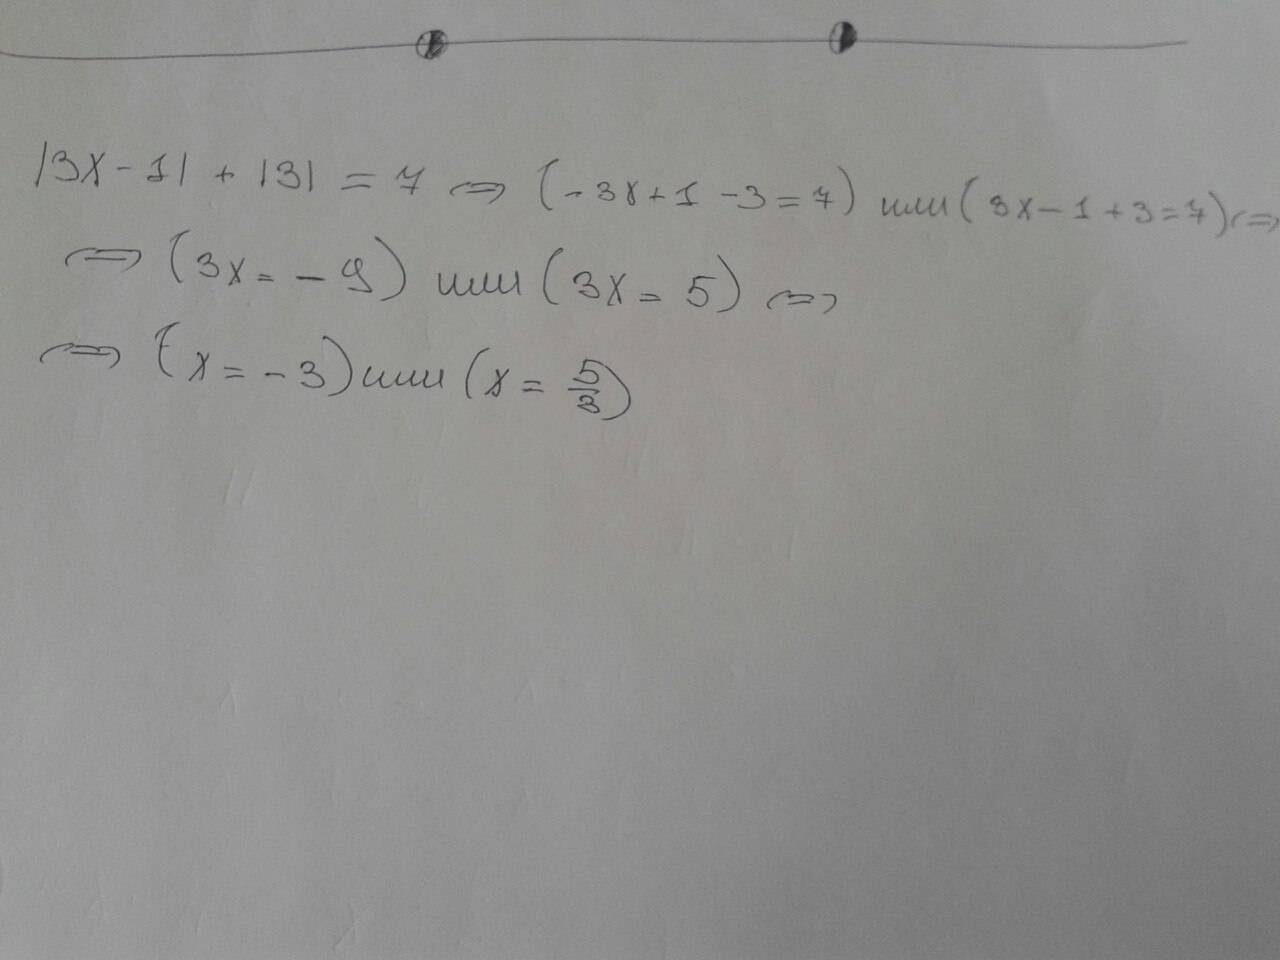 |3x - 1| + |3| = 7 ⇔ (-3x + 1 - 3 = 7) или (3x - 1 + 3 = 7) ⇔
⇔ (3x = - 9) или (3x = 5) ⇔
⇔ (x = - 3) или (x = 5/3)